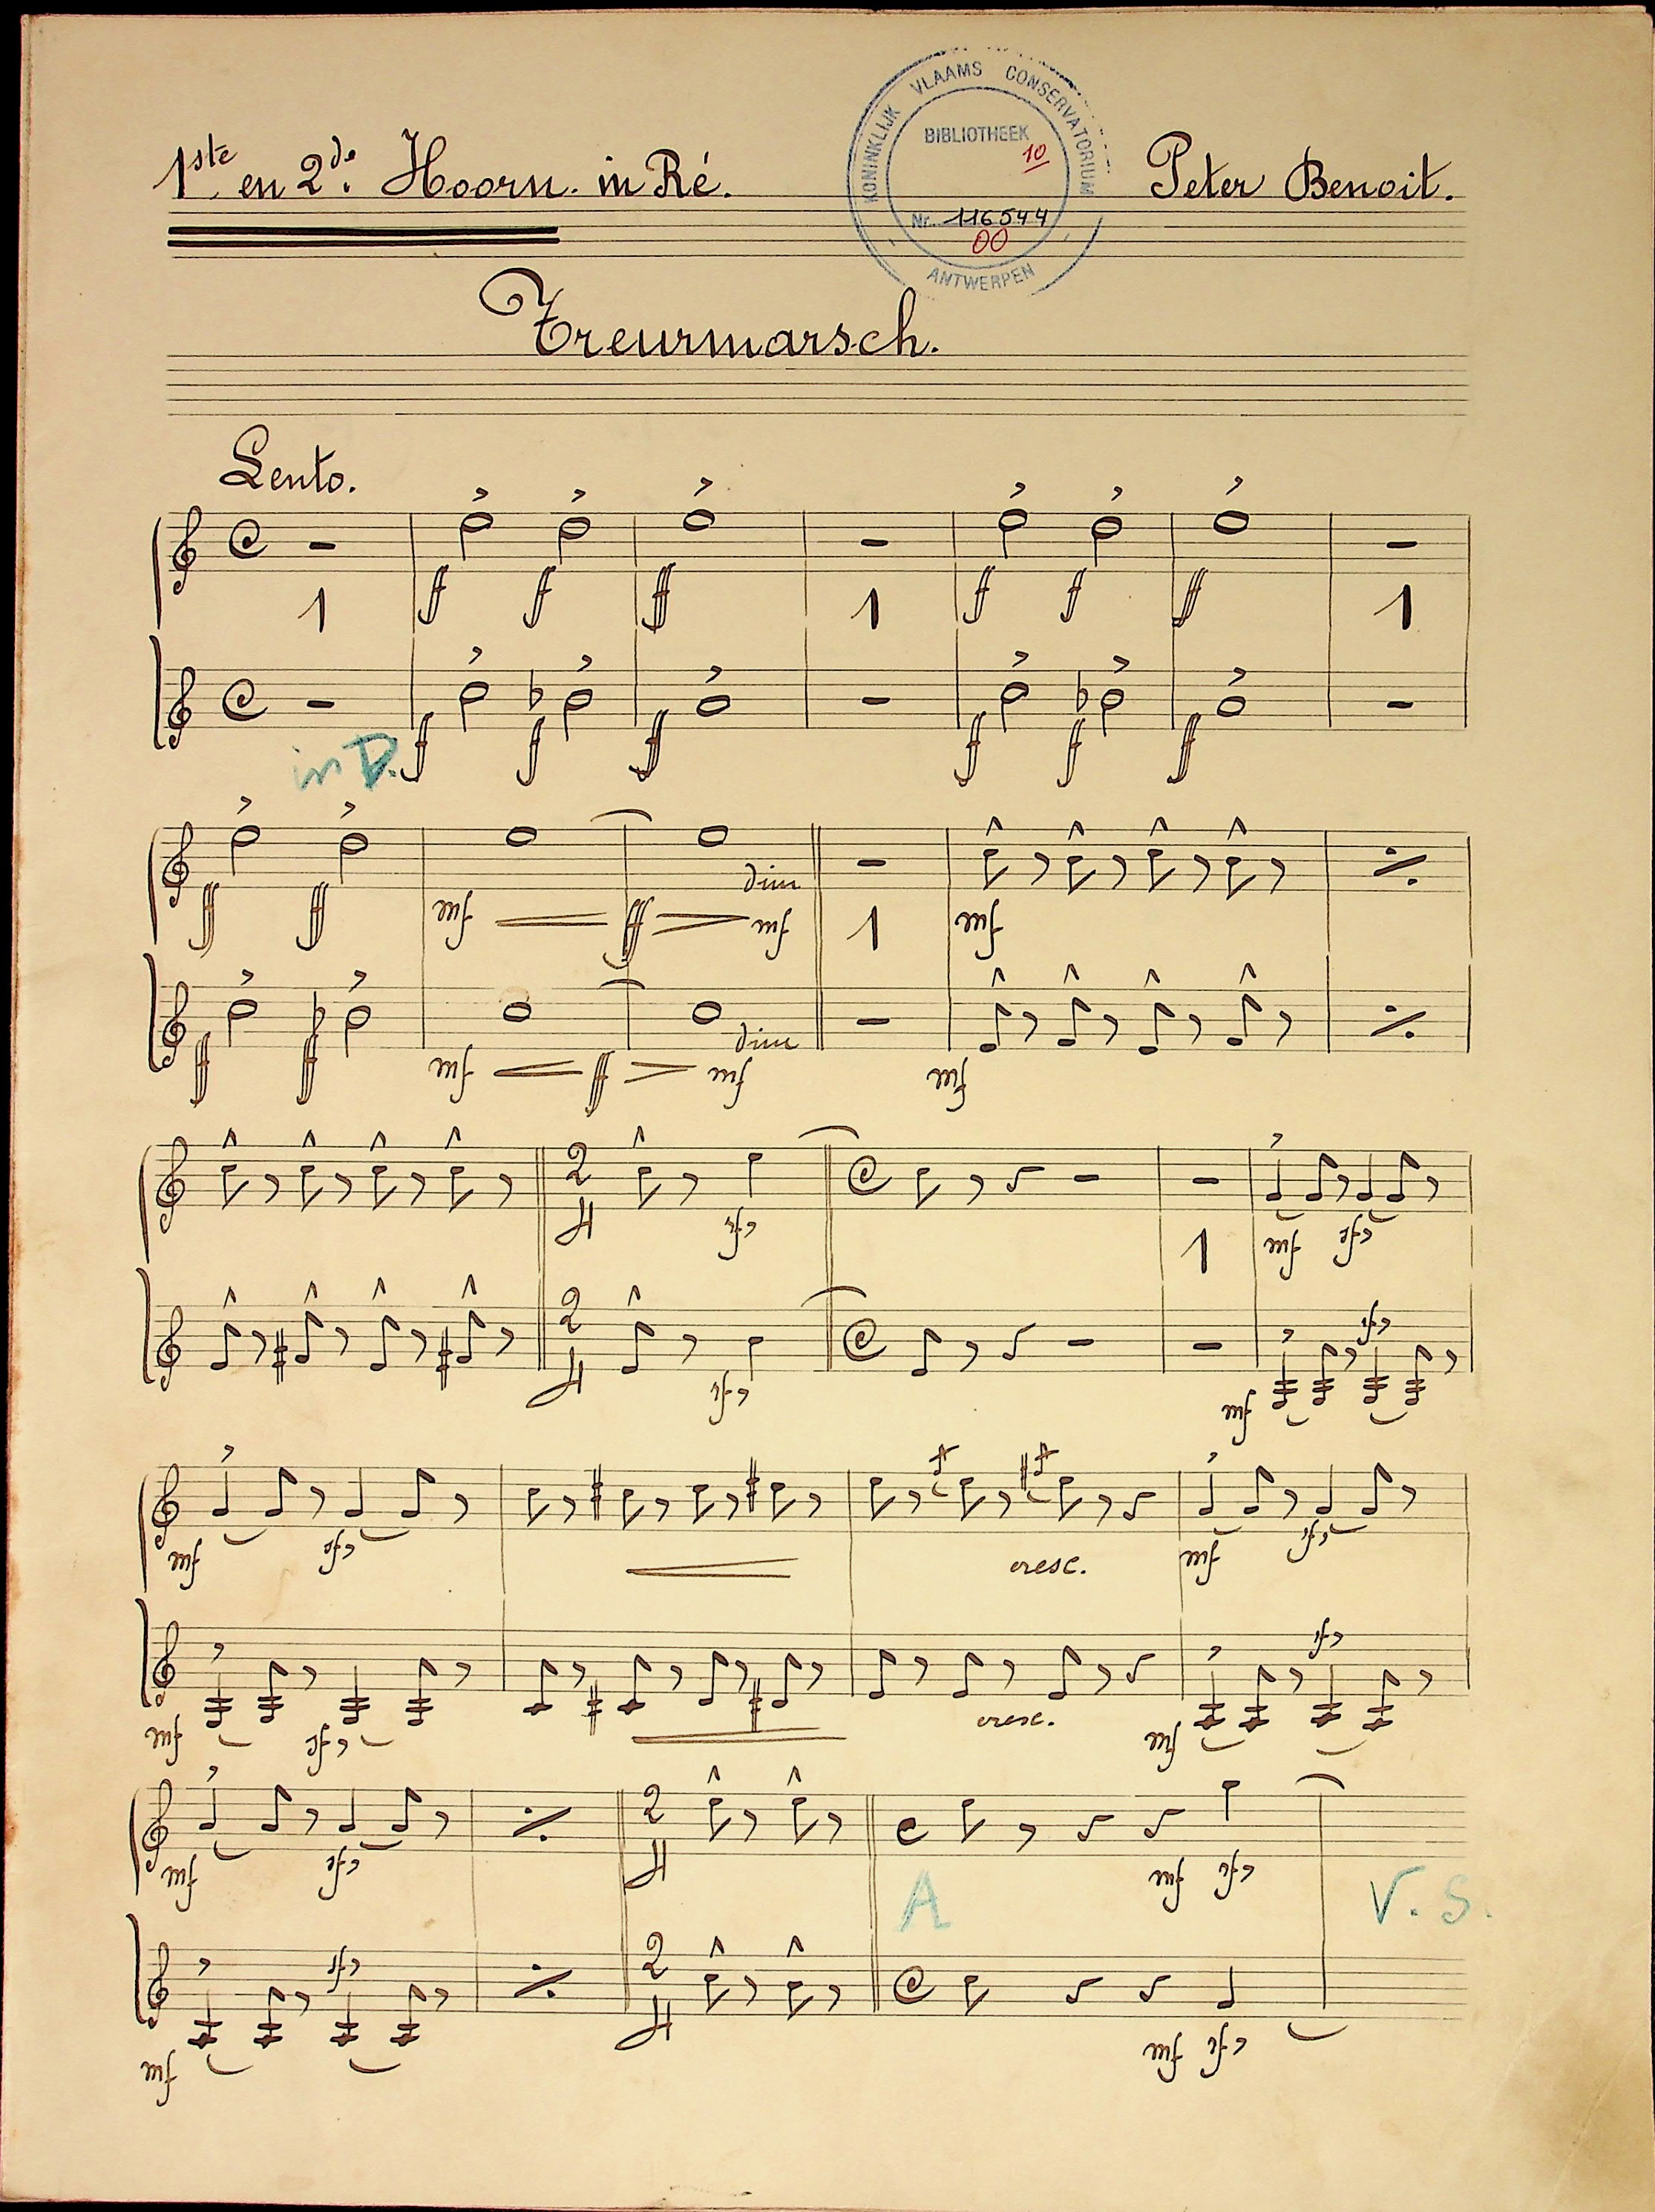 1ste en 2de Hoorn. in Ré.
KONINKLIJK VLAAMS CONSERVATORIUM
BIBLIOTHEEK
10
Nr. 116544
00
ANTWERPEN
Peter Benoit.
Treurmarsch.
Lento.
f f ff f f ff
1 1 1
in D.
f f ff f f ff
ff ff mf ff dim mf mf
1
ff ff mf ff dim mf mf
2
4
1
mf
2
4
mf
mf cresc. mf
mf cresc. mf
mf
2
4
mf
A
V. S.
mf
2
4
mf